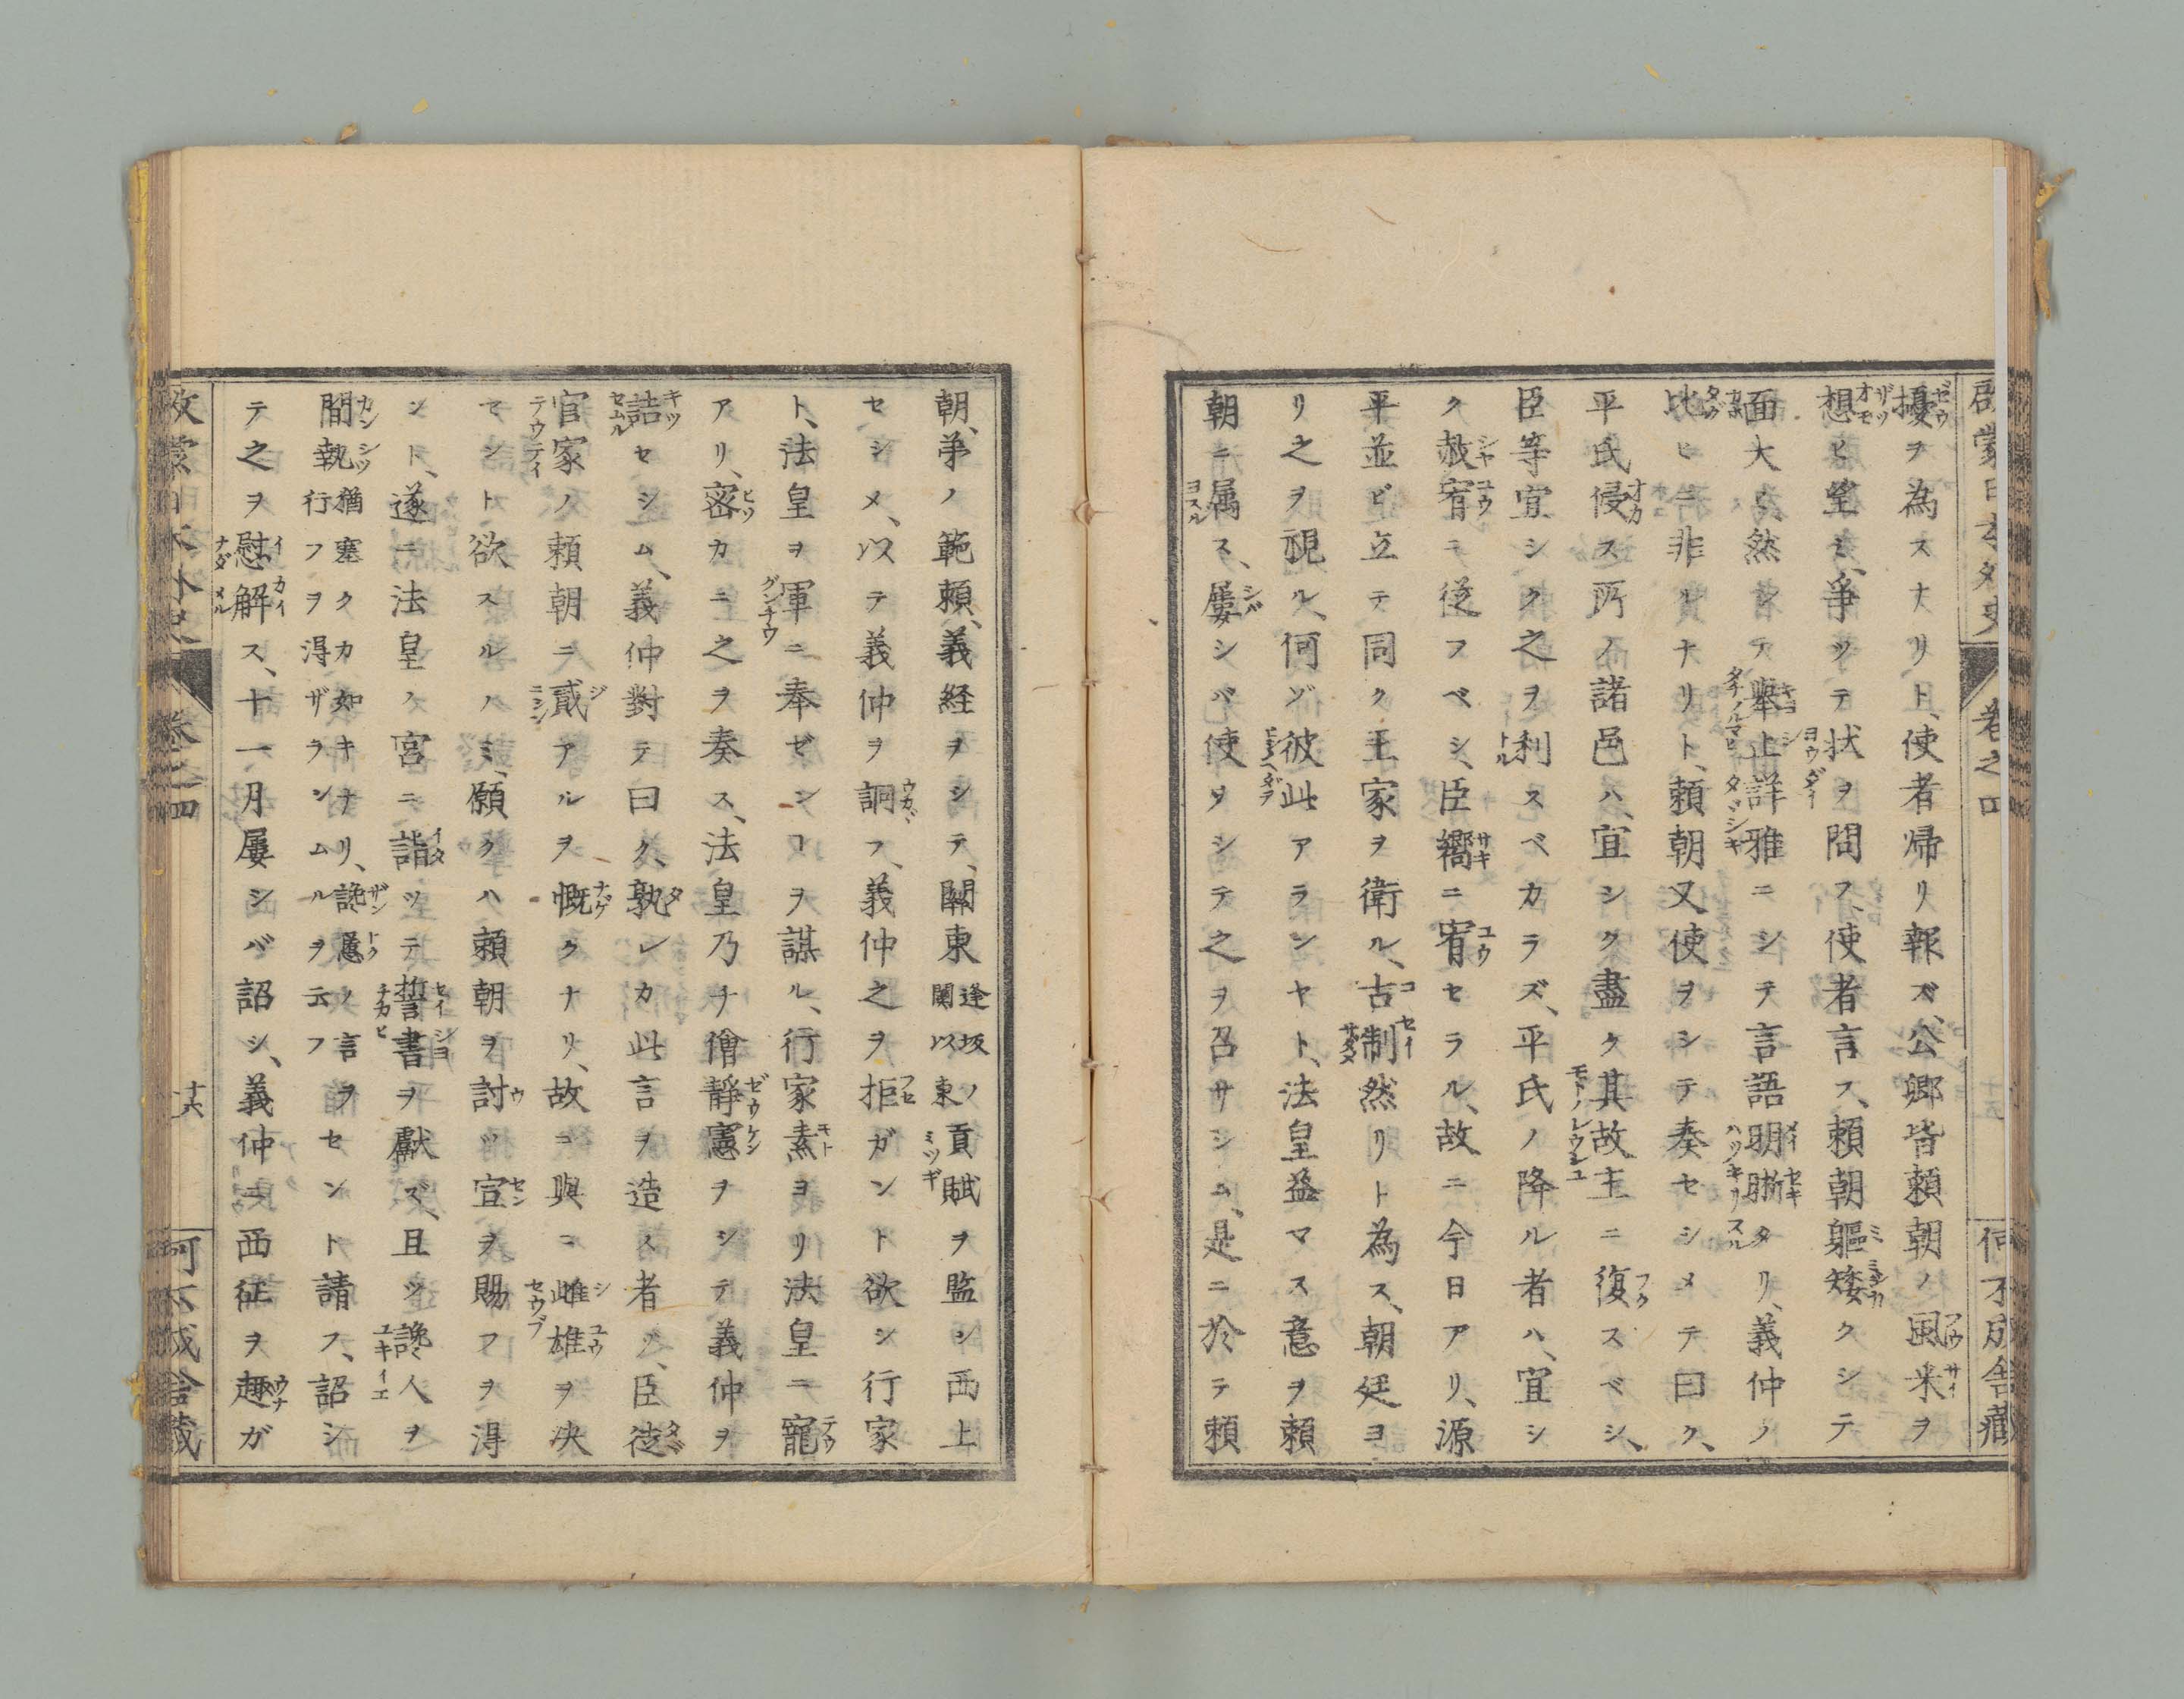 擾ヲ為スナリ、ト、使者帰リ報ズ、公卿皆頼朝ノ風采ヲ
想ヒ望ミ、爭ツテ状ヲ問フ、使者言ス、頼朝軀矮クシテ
面大ニ、然シテ擧止詳雅ニシテ言語明晰タリ、義仲ノ
比ヒニ非ルナリト、頼朝又使ヲシテ奏セシメテ曰ク、
平氏侵ス所ノ諸邑ハ、宜シク盡ク其故主ニ復スベシ、
臣等宜シク之ヲ利スベカラズ、平氏ノ降ル者ハ、宜シ
ク赦宥ニ従フベシ、臣嚮ニ宥セラル、故ニ今日アリ、源
平並ビ立テ同ク王家ヲ衛ル、古制然リト為ス、朝廷ヨ
リ之ヲ視ル、何ゾ彼此アランヤト、法皇益マス意ヲ頼
朝ニ属ス、屢シバ使ヲシテ之ヲ召サシム、是ニ於テ頼
朝、弟ノ範頼、義経ヲシテ、關東逢坂ノ關以東ノ貢賦ヲ監シ西上
セシメ、以テ義仲ヲ詗フ、義仲之ヲ拒ガント欲シ行家
ト、法皇ヲ軍ニ奉ゼンコヲ謀ル、行家素ヨリ法皇ニ寵
アリ、密カニ之ヲ奏ス、法皇乃チ僧靜憲ヲシテ義仲ヲ
詰セシム、義仲對テ曰ク、孰レカ此言ヲ造ス者ソ、臣徒
官家ノ頼朝ニ貳アルヲ慨クナリ、故ニ與ニ雌雄ヲ决
セントス欲スルノミ、願クハ頼朝ヲ討ツ宣ヲ賜フヲ得
ント、遂ニ法皇ノ宮ニ詣ツテ誓書ヲ獻ズ、且ツ讒人ヲ
間執猶塞クカ如キナリ、讒慝ノ言ヲ行フヲ得ザラシムルヲ云フセント請フ、詔シ
テ之ヲ慰解ス、十一月屢シバ詔シ、義仲ニ西征ヲ趣ガ
啟蒙日本外史 卷之四 何不成舎藏
啟蒙日本外史 卷之四 十六 何不成舎藏